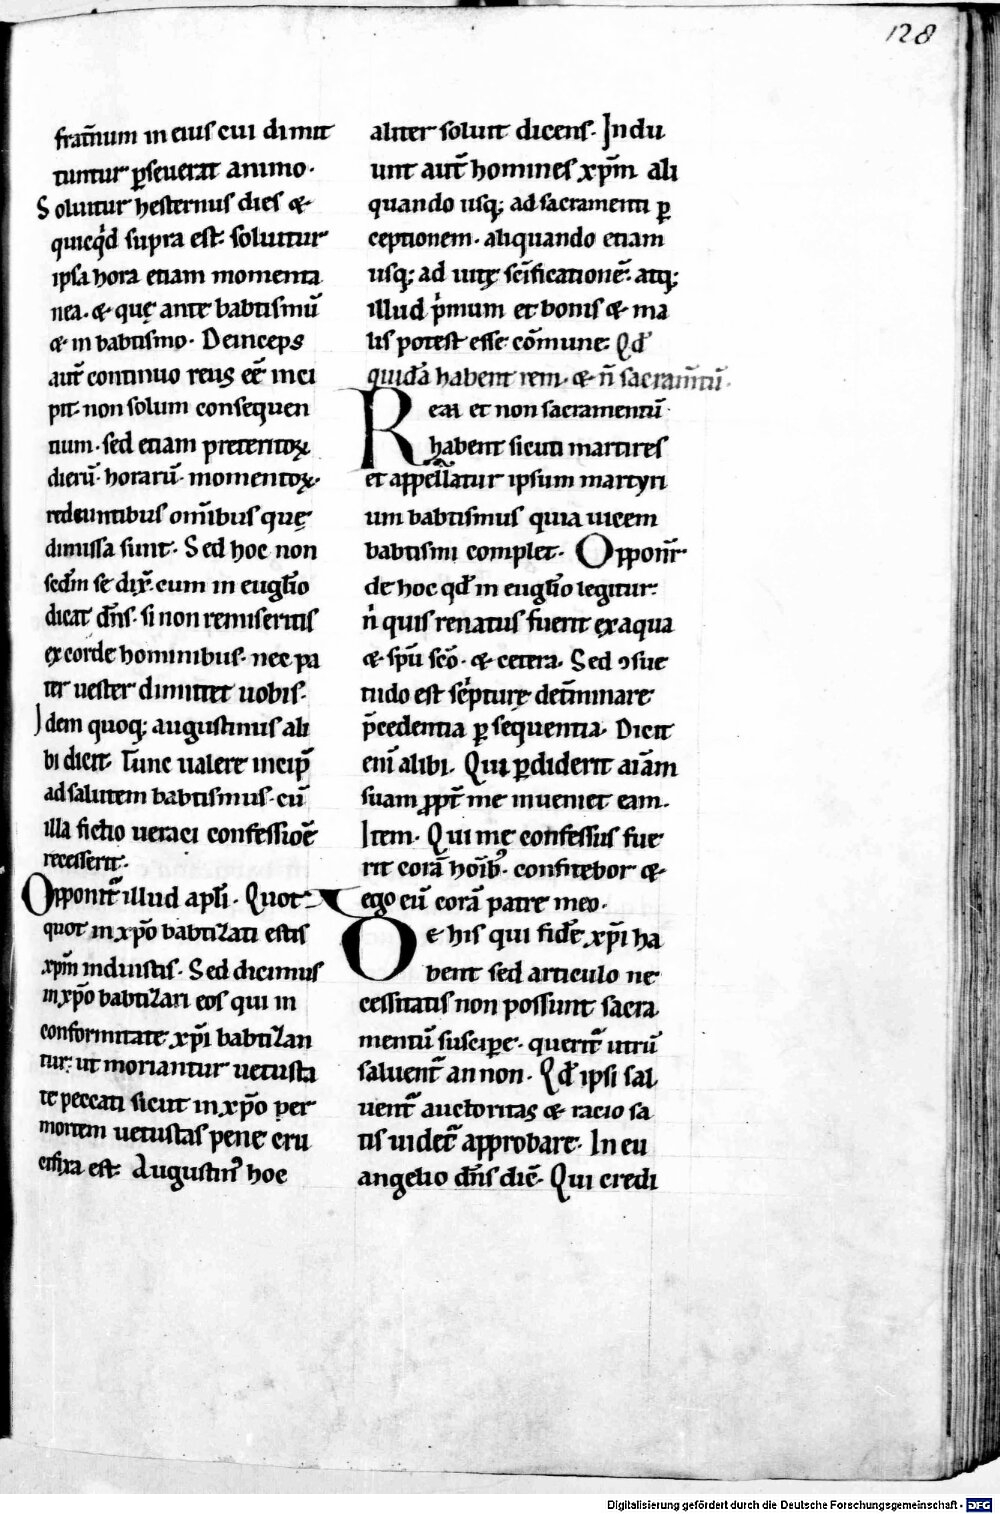 128
frat̄num in eius cui dimit
tuntur p̱seuerat animo.
Soluitur hesternus dies &
quicqͥd supra est. soluitur
ipsa hora etiam momenta
nea. & quę ante babtismū
& in babtismo. Deinceps
aut̄ continuo reus eē inci
pit. non solum consequen
tium. sed etiam preteritoꝝ
dierū. horarū. momentoꝝ.
redeuntibus om̄ibus quę
dimissa sunt. Sed hoc non
sedm se dix̄. cum in eugl̄io
dicat dn̄s. si non remiseritis
ex corde hominibus. nec pa
ter uester dimittet uobis.
Idem quoq; augustinus ali
bi dicit. Tunc ualere incip̄
ad salutem babtismus. cū
illa fictio ueraci confessioē
recesserit.
Opponit̄ illud apl̄i. Quot
quot in xp̄o babtizati estis
xp̄m induistis. Sed dicimus
in xp̄o babtizari eos qui in
conformitate xp̄i babtizan
tur. ut moriantur uetusta
te peccati sicut in xp̄o per
mortem uetustas penę cru
cifixa est. Augustinꝰ hoc
aliter soluit dicens. Indu
unt aut̄ homines xp̄m ali
quando usq; ad sacramenti ꝑ
ceptionem. aliquando etiam
usq; ad uitę sc̄ificationē. atq;
illud pͥmum et bonis & ma
lis potest esse cōmune. Qd̄
quidā habent rem. & n̄ sacram̄tū.
Rem et non sacramentū
habent sicuti martires
et appellatur ipsum martyri
um babtismus quia uicem
babtismi complet. Opponit̄
de hoc qd̄ in eugl̄io legitur.
nͥ quis renatus fuerit ex aqua
& sp̄u sc̄o. & cetera. Sed ꝯsue
tudo est scͥpturę det̄minare
p̄cedentia ꝑ sequentia. Dicit
enī alibi. Qui ꝑdiderit aīam
suam ꝓpt̄ me inueniet eam.
Item. Qui me confessus fue
rit corā hoībꝰ. confitebor &
ego eū corā patre meo.
De his qui fidē xp̄i ha
bent sed articulo ne
cessitatis non possunt sacra
mentū suscipe̱. querit̄ utrū
saluent̄ an non. Qd̄ ipsi sal
uent̄ auctoritas & racio sa
tis uidet̄ approbare. In eu
angelio dn̄s diē. Qui credi
Digitalisierung gefördert durch die Deutsche Forschungsgemeinschaft - DFG